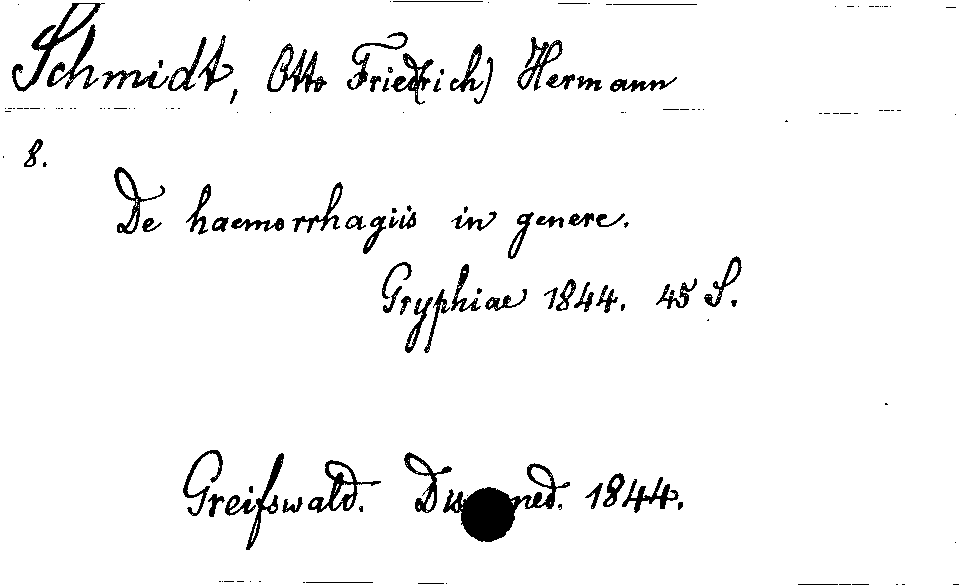 Schmidt, Otto Fried(rich) Hermann
8.
De haemorrhagiis in genere.
Gryphiae 1844. 45 S.
Greifswald. med. 1844.